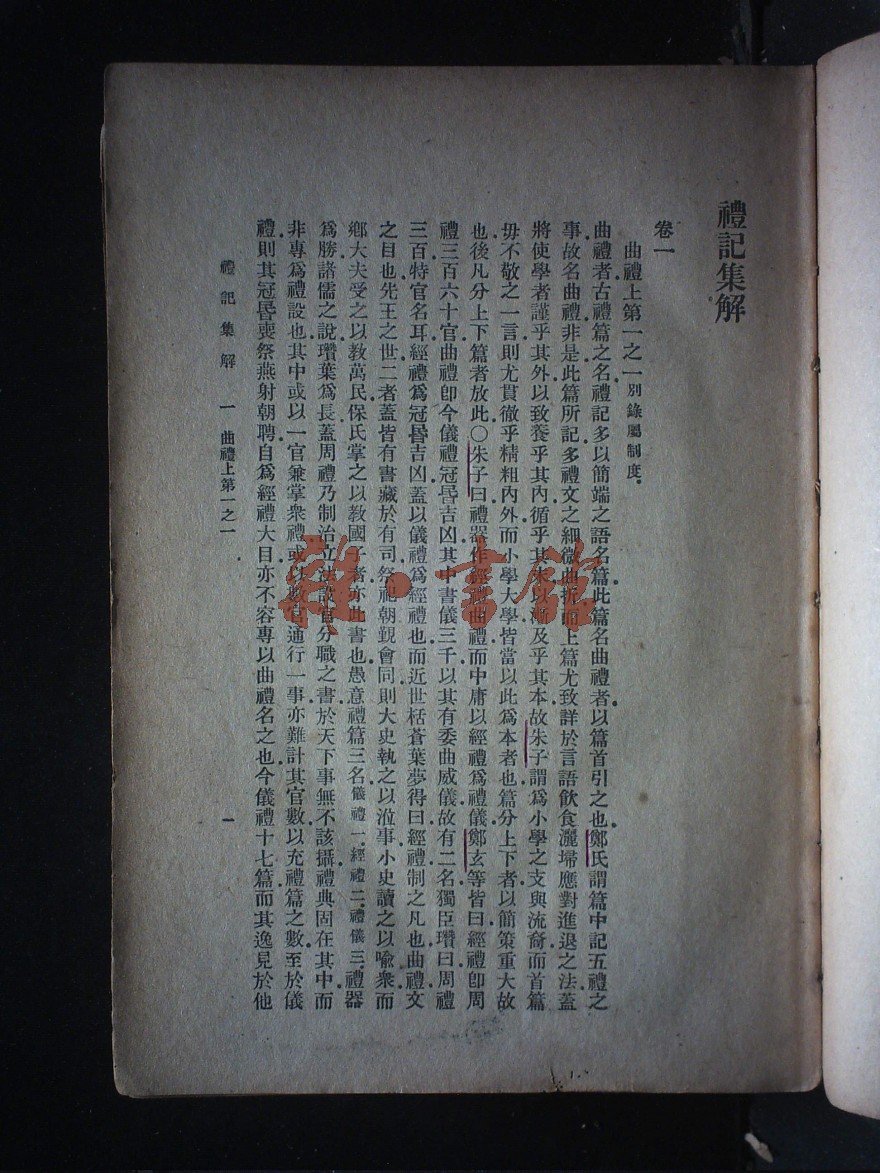 禮記集解
卷一
曲禮上第一之一別錄屬制度.
曲禮者.古禮篇之名.禮記多以簡端之語名篇.此篇名曲禮者.以篇首引之也.鄭氏謂篇中記五禮之
事.故名曲禮.非是.此篇所記.多禮文之細微曲折.而上篇尤致詳於言語飲食灑埽應對進退之法.蓋
將使學者謹乎其外.以致養乎其內.循乎其末.以漸及乎其本.故朱子謂爲小學之支與流裔.而首篇
毋不敬之一言.則尤貫徹乎精粗內外.而小學大學皆當以此爲本者也.篇分上下者.以簡策重大故
也.後凡分上下篇者放此.〇朱子曰.禮器作經禮曲禮.而中庸以經禮爲禮儀.鄭玄等皆曰.經禮卽周
禮三百六十官.曲禮卽今儀禮冠昬吉凶.其中書儀三千.以其有委曲威儀.故有二名.獨臣瓚曰.周禮
三百.特官名耳.經禮爲冠昬吉凶.蓋以儀禮爲經禮也.而近世栝蒼葉夢得曰.經禮制之凡也.曲禮文
之目也.先王之世.二者蓋皆有書藏於有司.祭祀朝覲會同.則大史執之以涖事.小史讀之以喩衆.而
鄉大夫受之以敎萬民.保氏掌之以敎國子者.亦此書也.愚意禮篇三名.儀禮一.經禮二.禮儀三.禮器
爲勝.諸儒之說.瓚葉爲長.蓋周禮乃制治立法設官分職之書.於天下事無不該攝.禮典固在其中.而
非專爲禮設也.其中或以一官兼掌衆禮.或以數官通行一事.亦難計其官數以充禮篇之數.至於儀
禮.則其冠昬喪祭燕射朝聘.自爲經禮大目.亦不容專以曲禮名之也.今儀禮十七篇.而其逸見於他
禮記集解 一 曲禮上第一之一
一